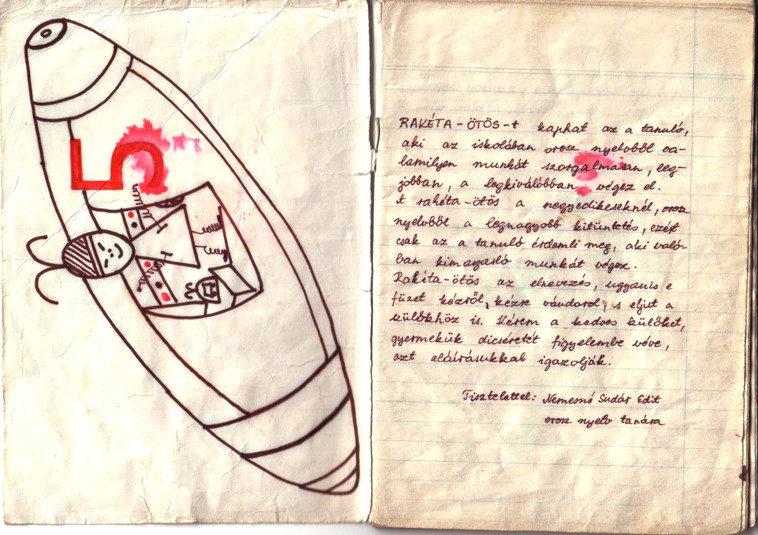 5
RAKÉTA-ÖTÖS-t kaphat az a tanuló,
aki az iskolában orosz nyelvből va-
lamilyen munkát szorgalmasan, leg-
jobban, a legkiválóbban végez el.
A rakéta-ötös a negyedikeseknél, orosz
nyelvből a legnagyobb kitüntetés, ezért
csak az a tanuló érdemli meg, aki való-
ban kimagasló munkát végez.
Rakéta-ötös az elnevezés, ugyanis e
füzet kézről, kézre vándorol, s eljut a
szülőkhöz is. Kérem a kedves szülőket,
gyermekük dicséretét figyelembe véve,
azt aláírásukkal igazolják.
Tisztelettel: Nemesné Sudár Edit
orosz nyelv tanára